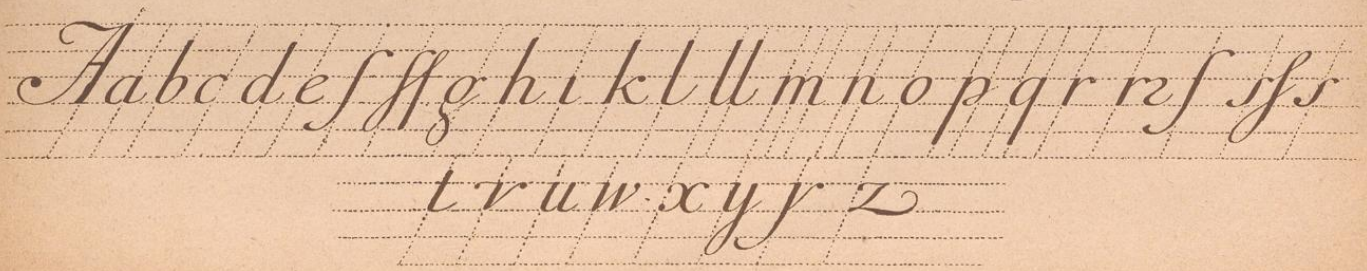 A a b c d e f ff g h i k l ll m n o p q r r ꝛ ſ s ſ s
t v u w x y y z